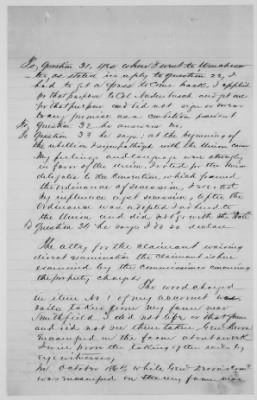 To Question 31, Yes when I went to Winchester
as stated in reply to question 22, I
had to get a pass to come back, I applied
for that purpose to Col Nadenbusch and got one
for that purpose and did not sign or swear
to any promise as a condition
To Question 32 he answers no
To Question 33 he says; at the beginning of
the rebellion I sympathized with the Union cause
My feelings and language were strongly
in favor of the Union, I voted for the Union
delegates to the Convention which framed
the ordinance of secession, I exerted
my influence against secession, after the
Ordinance was adopted I adhered to
the Union and did not go with the State
To Question 34 he says I do so declare
The atty for the claimant waiving
direct examination the claimant is here
examined by the commissioner concerning
the property charged
The wood charged
in item No 1 of my account was
taken from my farm near
Smithfield. I did not live on that farm
and did not see them take it. Genl
encamped on the farm
I know from the taking of the wood by
eye witnesses,
In October 1864, while Genl
was encamped on the my farm near